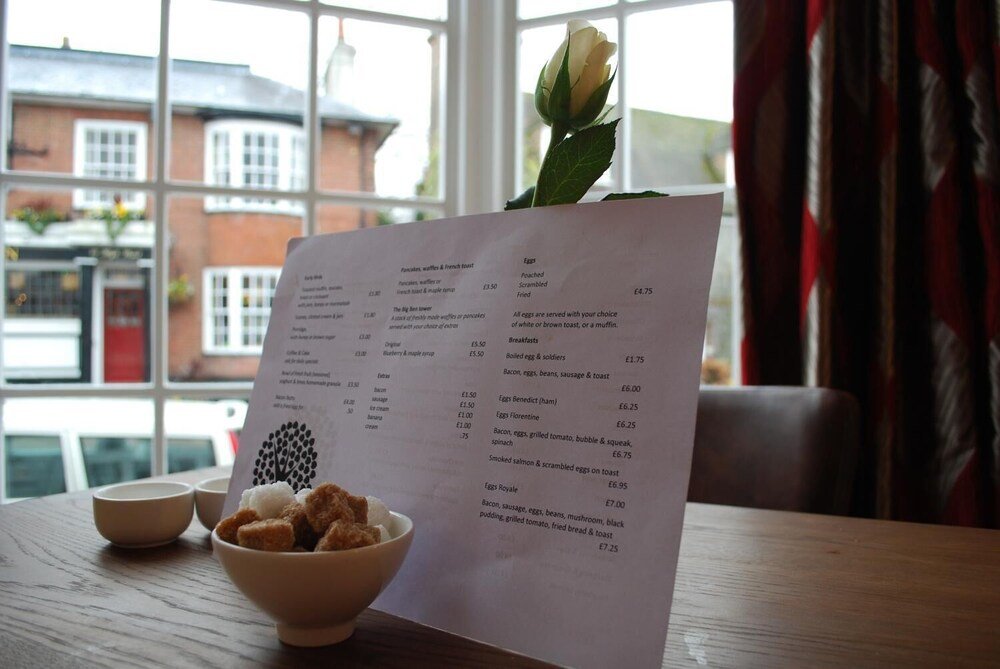 Early birds
Toasted muffin, teacake,
toast or croissant
with jam, honey or marmalade
£1.80
Scones, clotted cream & jam
Porridge,
with honey or brown sugar
£3.00
Coffee & Cake
£3.00
ask for daily specials
Bowl of fresh fruit (seasonal)
yoghurt & Bens homemade granola
£3.50
Bacon Butty
£4.00
add a fried egg for
.50
Pancakes, waffles & French toast
Pancakes, waffles or
French toast & maple syrup
£3.50
The Big Ben tower
A stack of freshly made waffles or pancakes
served with your choice of extras
Original
£5.50
Blueberry & maple syrup
£5.50
Extras
bacon
£1.50
sausage
£1.50
ice cream
£1.00
banana
£1.00
cream
.75
Eggs
Poached
Scrambled
Fried
£4.75
All eggs are served with your choice
of white or brown toast, or a muffin.
Breakfasts
Boiled egg & soldiers
£1.75
Bacon, eggs, beans, sausage & toast
£6.00
Eggs Benedict (ham)
£6.25
Eggs Florentine
£6.25
Bacon, eggs, grilled tomato, bubble & squeak,
spinach
£6.75
Smoked salmon & scrambled eggs on toast
£6.95
Eggs Royale
£7.00
Bacon, sausage, eggs, beans, mushroom, black
pudding, grilled tomato, fried bread & toast
£7.25